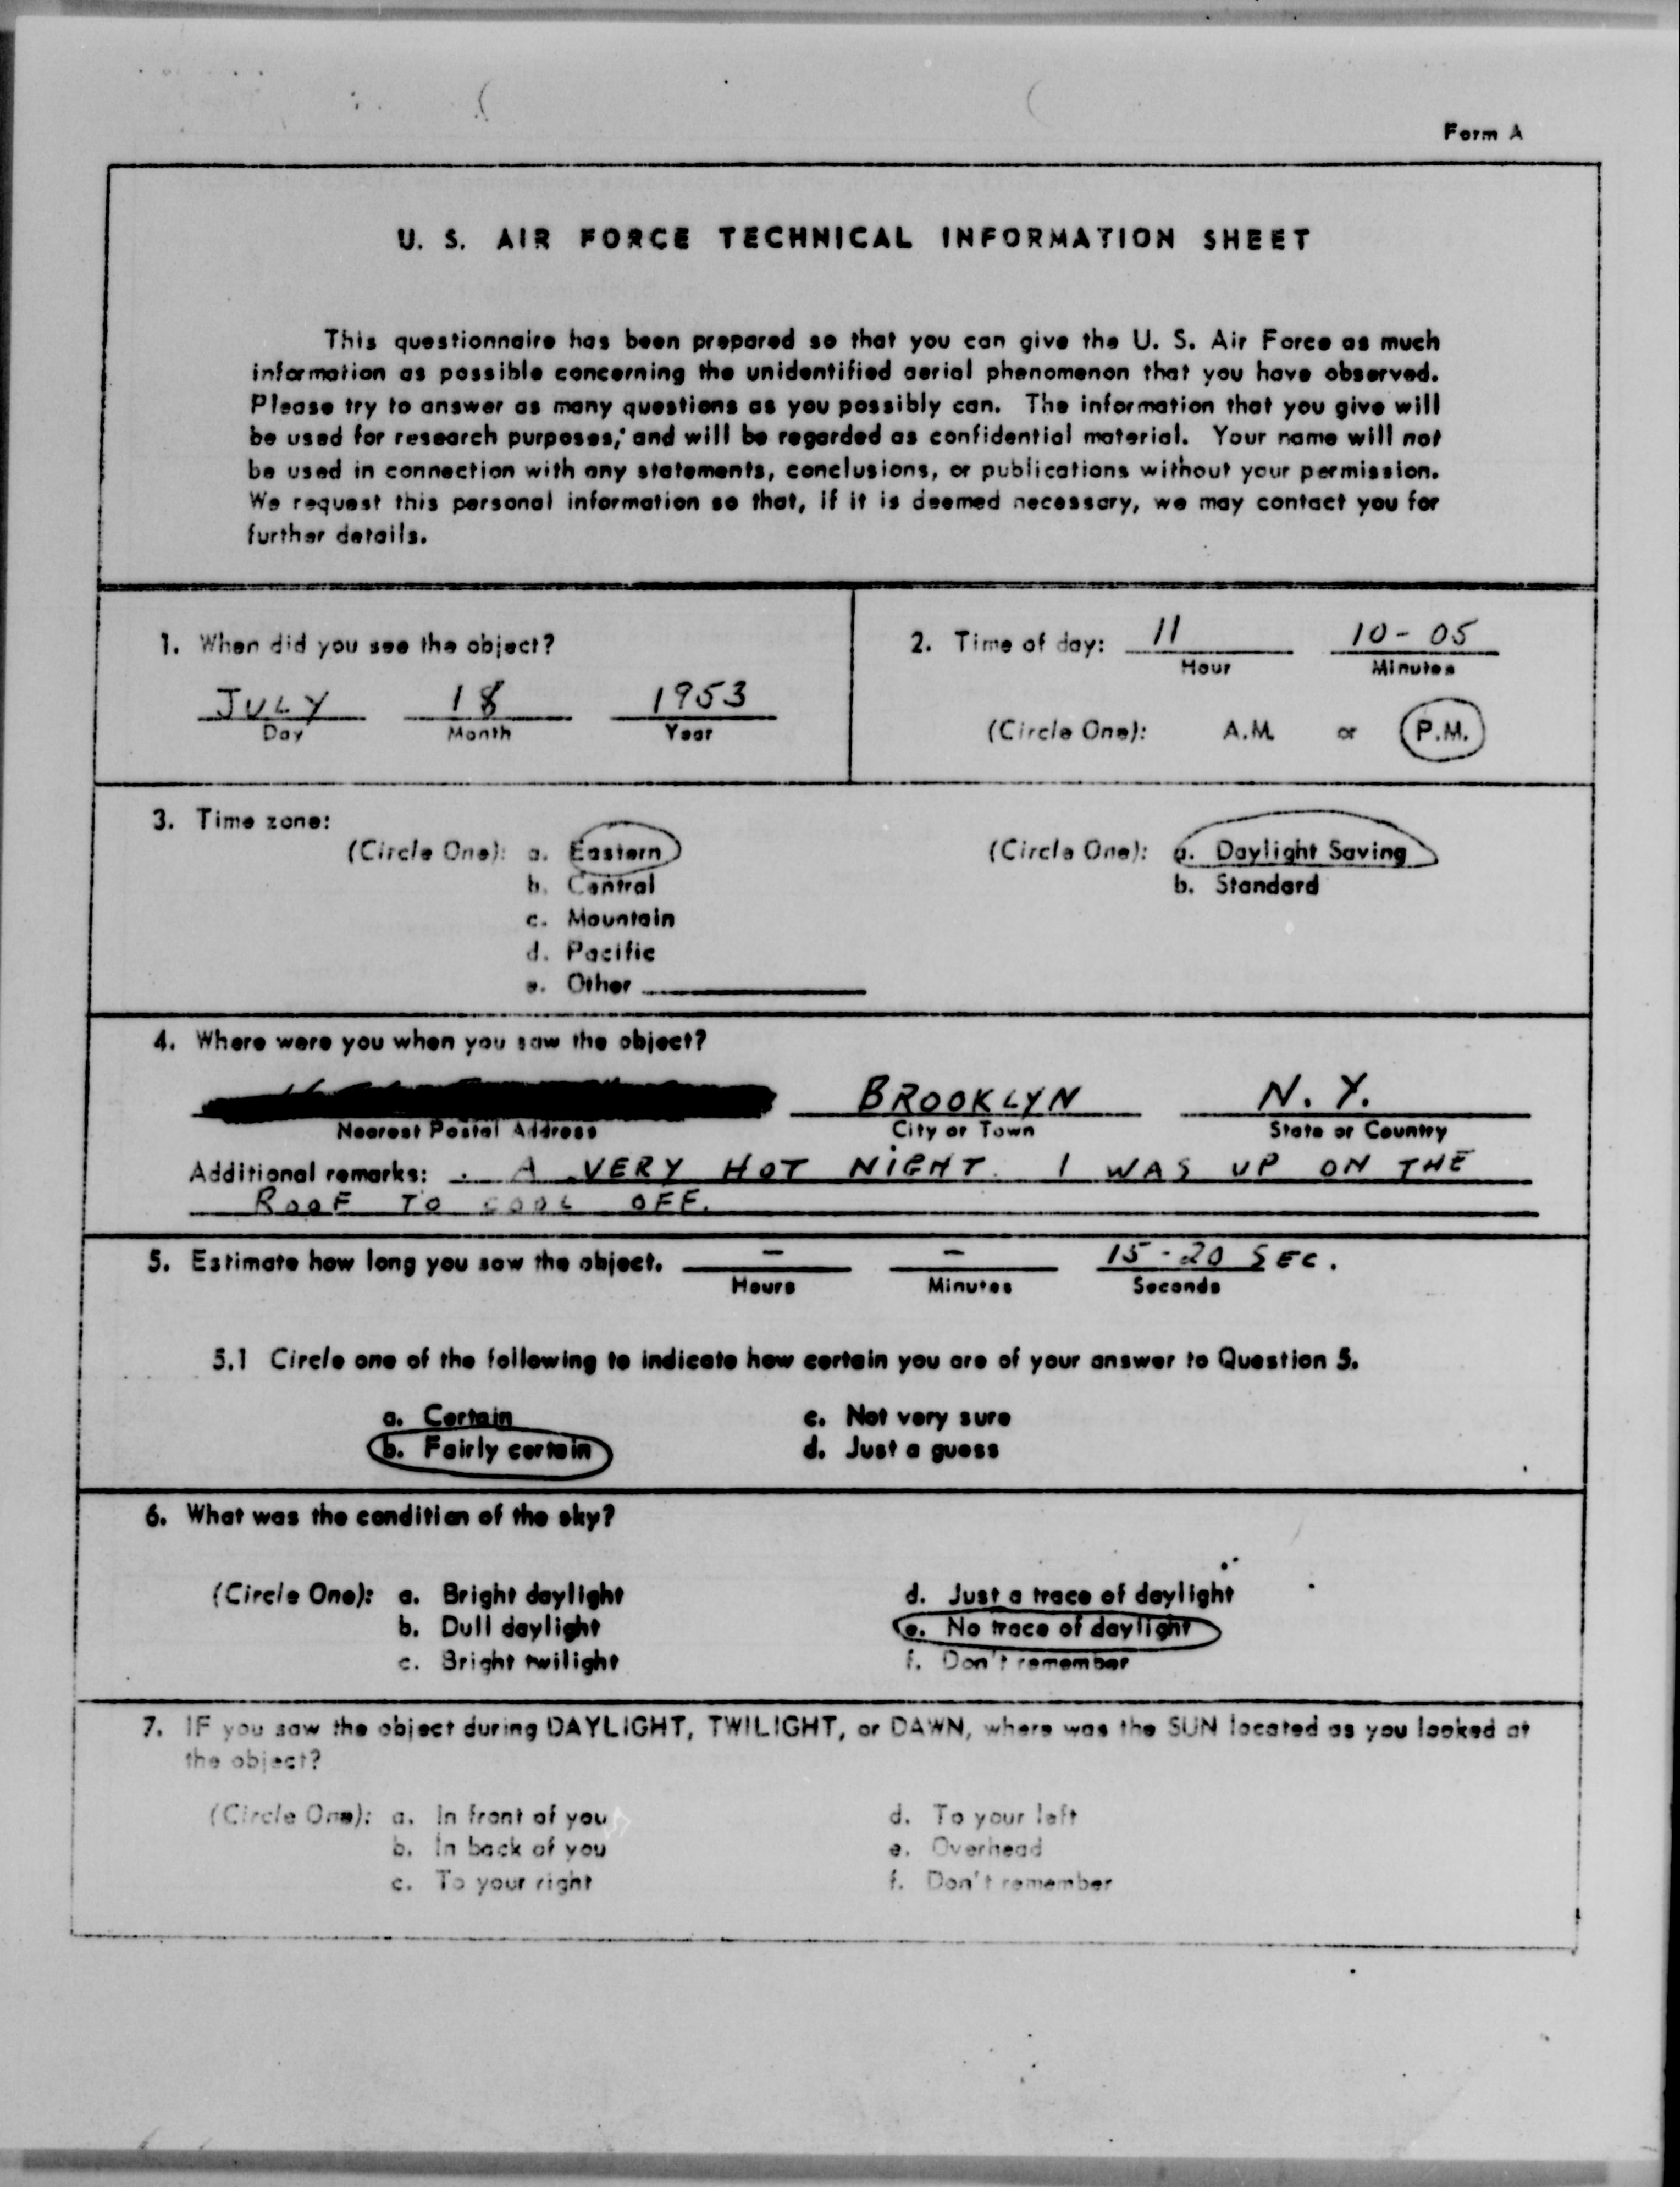 Form A
U. S. AIR FORCE TECHNICAL INFORMATION SHEET
This questionnaire has been prepared so that you can give the U. S. Air Force as much
information as possible concerning the unidentified aerial phenomenon that you have observed.
Please try to answer as many questions as you possibly can. The information that you give will
be used for research purposes, and will be regarded as confidential material. Your name will not
be used in connection with any statements, conclusions, or publications without your permission.
We request this personal information so that, if it is deemed necessary, we may contact you for
further details.
1. When did you see the object?
JULY 18 1953
Day Month Year
2. Time of day: 11 10-05
Hour Minutes
(Circle One): A.M. or P.M.
3. Time zone:
(Circle One): a. Eastern
b. Central
c. Mountain
d. Pacific
e. Other
(Circle One): a. Daylight Saving
b. Standard
4. Where were you when you saw the object?
BROOKLYN N. Y.
Nearest Postal Address City or Town State or Country
Additional remarks: . A VERY HOT NIGHT. I WAS UP ON THE
ROOF TO COOL OFF.
5. Estimate how long you saw the object. - - 15-20 SEC.
Hours Minutes Seconds
5.1 Circle one of the following to indicate how certain you are of your answer to Question 5.
a. Certain c. Not very sure
b. Fairly certain d. Just a guess
6. What was the condition of the sky?
(Circle One): a. Bright daylight d. Just a trace of daylight
b. Dull daylight e. No trace of daylight
c. Bright twilight f. Don't remember
7. IF you saw the object during DAYLIGHT, TWILIGHT, or DAWN, where was the SUN located as you looked at
the object?
(Circle One): a. In front of you d. To your left
b. In back of you e. Overhead
c. To your right f. Don't remember